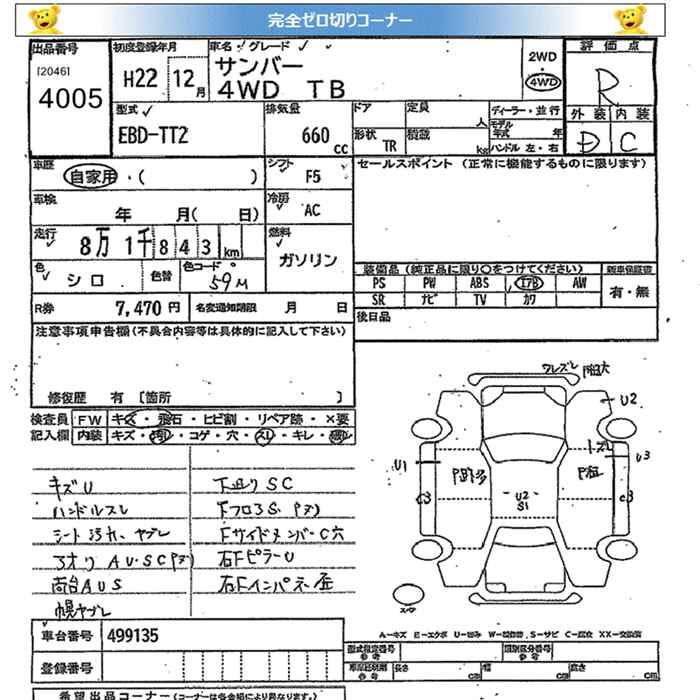 完全ゼロ切りコーナー
出品番号 初度登録年月 車名・グレード 2WD 評価点
[2046] H22 12月 サンバー ・ R
4005 4WD TB 4WD
外装 内装
D C
型式 排気量 ドア 定員 人 ディーラー・並行
EBD-TT2 660 cc 形状 TR 積載 kg モデル年式 年
ハンドル 左・右
車歴 自家用・( ) シフト F5 セールスポイント (正常に機能するものに限ります)
車検 年 月( 日) 冷房 AC
走行 8万1千843 km 燃料 ガソリン
色 シロ 色替 色コード 59M
装備品 (純正品に限り○をつけてください) 新車保証書
PS PW ABS エアB AW 有・無
SR ナビ TV カワ
R券 7,470円 名変通知期限 月 日 後日品
注意事項申告欄 (不具合内容等は具体的に記入して下さい)
修復歴 有 [箇所 ]
検査員 FW キズ・飛石・ヒビ割・リペア跡・×要
記入欄 内装 キズ・汚れ・コゲ・穴・スレ・キレ・
キズU 下廻りSC
ハンドルスレ
シート汚れ、ヤブレ FサイドメンバーC穴
アオリAU・SC 右FピラーU
荷台AUS 右Fインパネ歪
幌ヤブレ
ワレズレ
U2
U1
U3
C3
C3
U2
S1
スペア
A―キズ E―エクボ U―凹み W―補修跡、S―サビ C―腐食 XX―交換済
車台番号 499135
型式指定番号 参考 類別区分番号 参考
登録番号 長さ cm 幅 cm 高さ cm
希望出品コーナー (コーナーは各会場により異なります。)